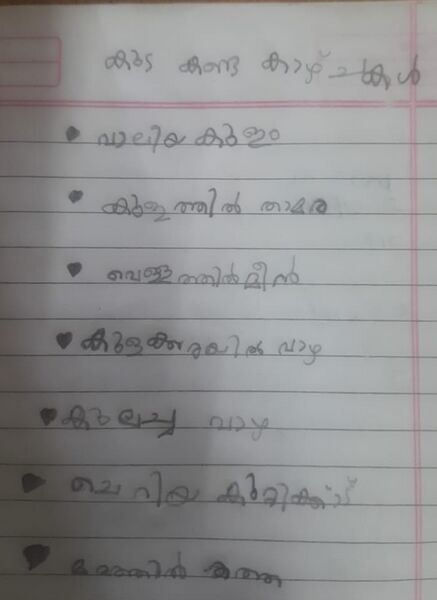 കുട കണ്ട കാഴ്ചകൾ
വാലിയ കുളം
കുളത്തിൽ താമര
വെള്ളത്തിൽ മീൻ
കുളക്കരയിൽ വാഴ
കുലച്ച വാഴ
ചെറിയ കുമിള്
മരത്തിൽ തത്ത